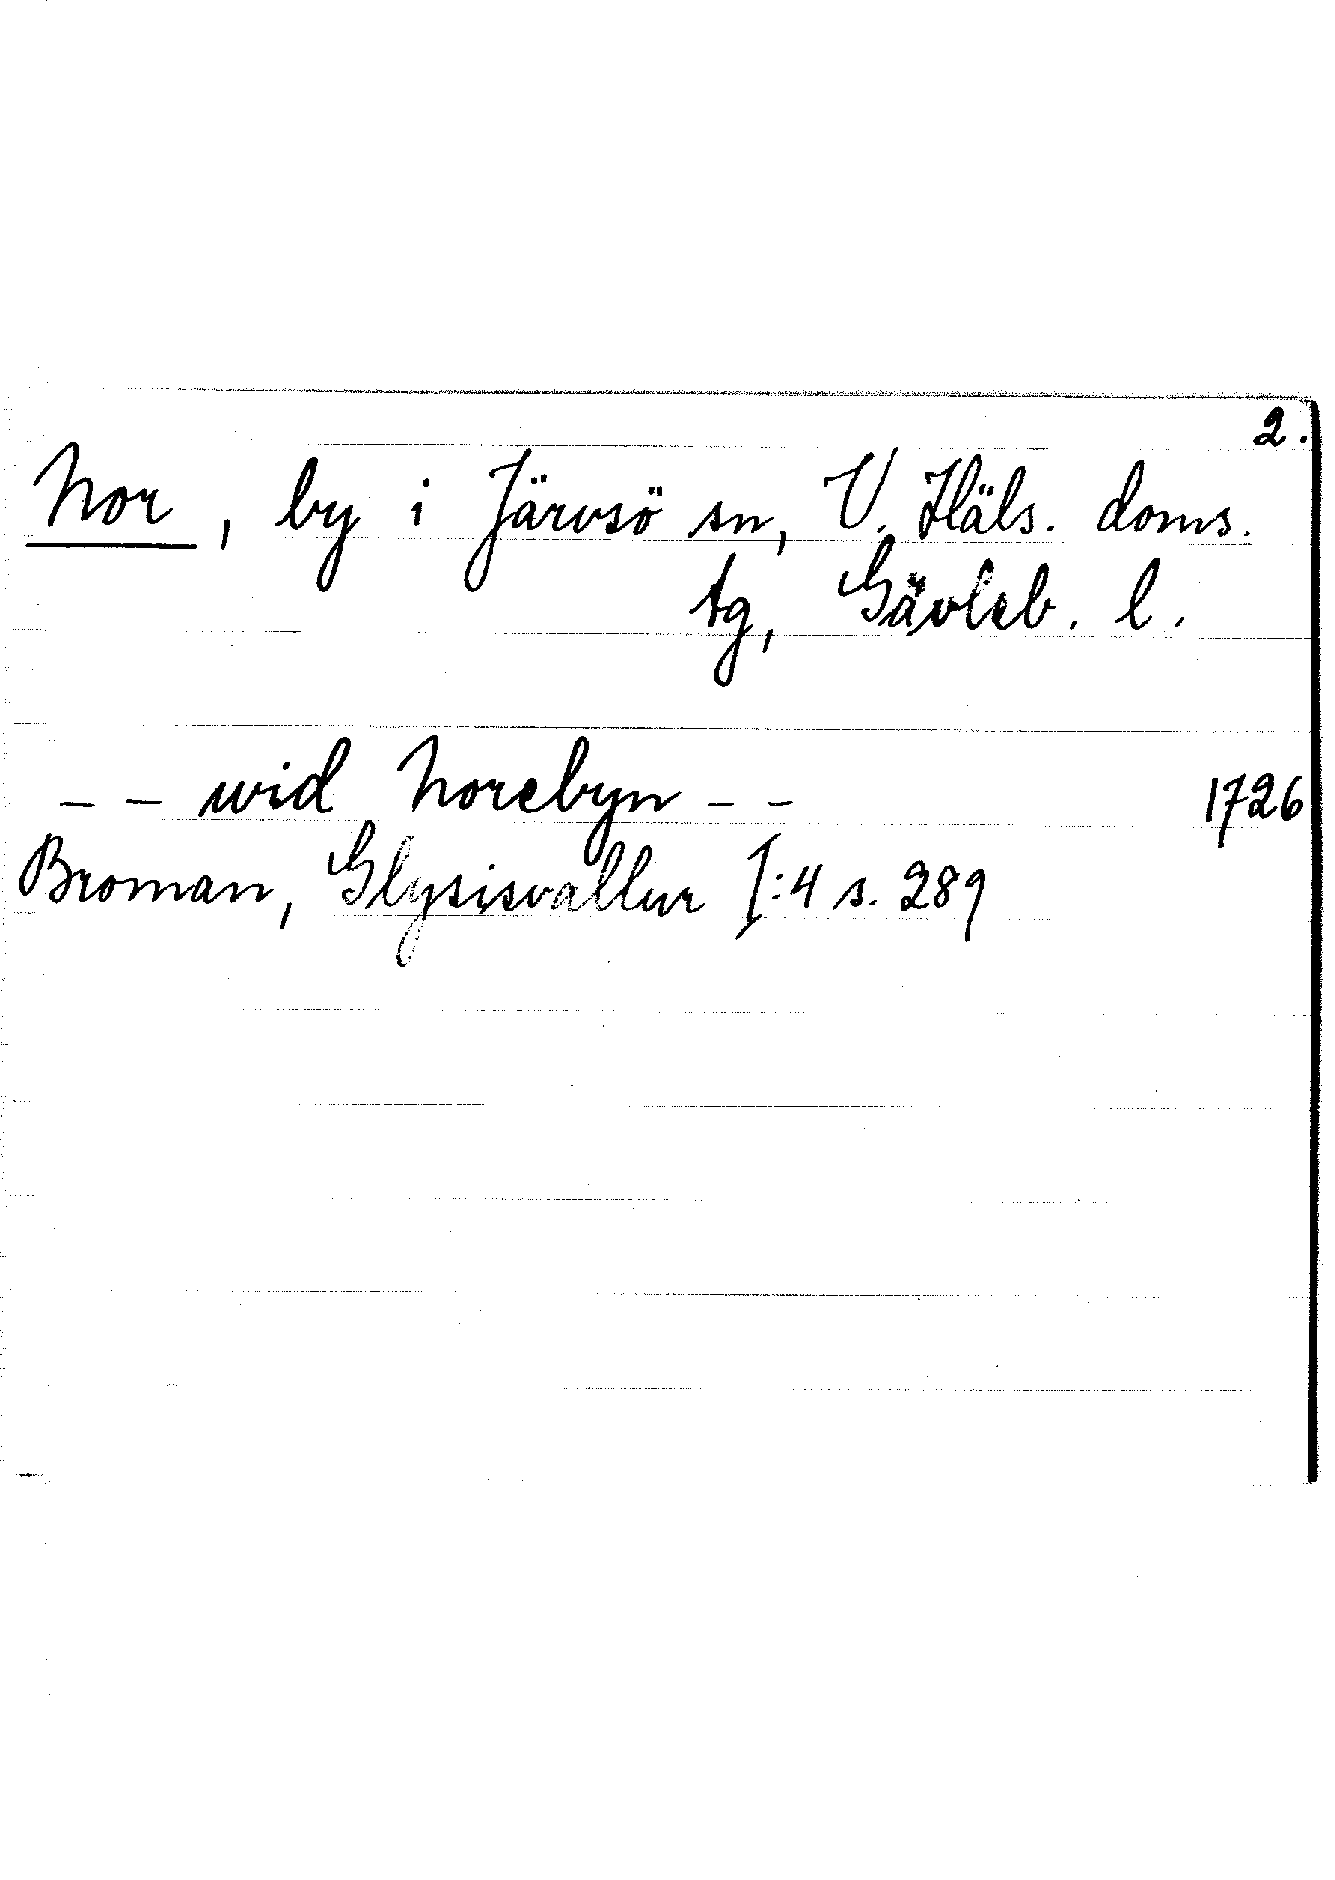 2.
Nor, by i Järvsö sn, V. Häls. doms.
tg, Gävleb. l.
-- wid Norebyn -- 1726
Broman, Glysisvallur I:4 s. 289